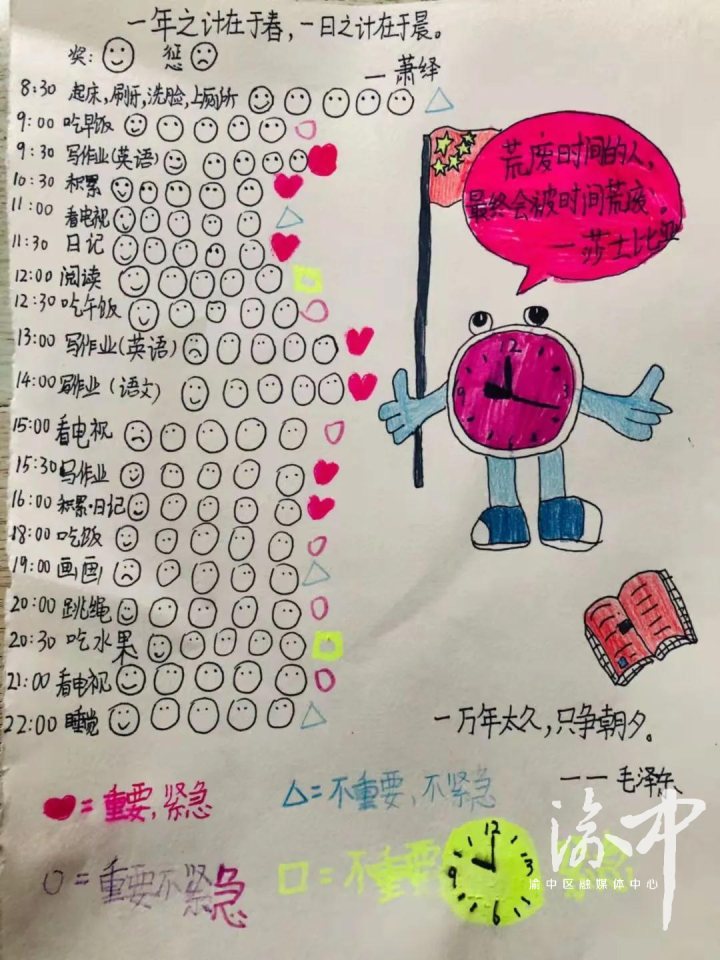 一年之计在于春，一日之计在于晨。
奖： 惩
— 萧绎
8:30 起床，刷牙，洗脸，上厕所
9:00 吃早饭
9:30 写作业(英语)
10:30 积累
11:00 看电视
11:30 日记
12:00 阅读
12:30 吃午饭
13:00 写作业(英语)
14:00 写作业（语文）
15:00 看电视
15:30 写作业
16:00 积累·日记
18:00 吃饭
19:00 画画
20:00 跳绳
20:30 吃水果
21:00 看电视
22:00 睡觉
荒废时间的人，
最终会被时间荒废。
—莎士比亚
12
3
6
9
一万年太久，只争朝夕。
——毛泽东
=重要，紧急
=不重要，不紧急
=重要不紧急
=不重要
紧急
12
3
6
9
渝中
渝中区融媒体中心